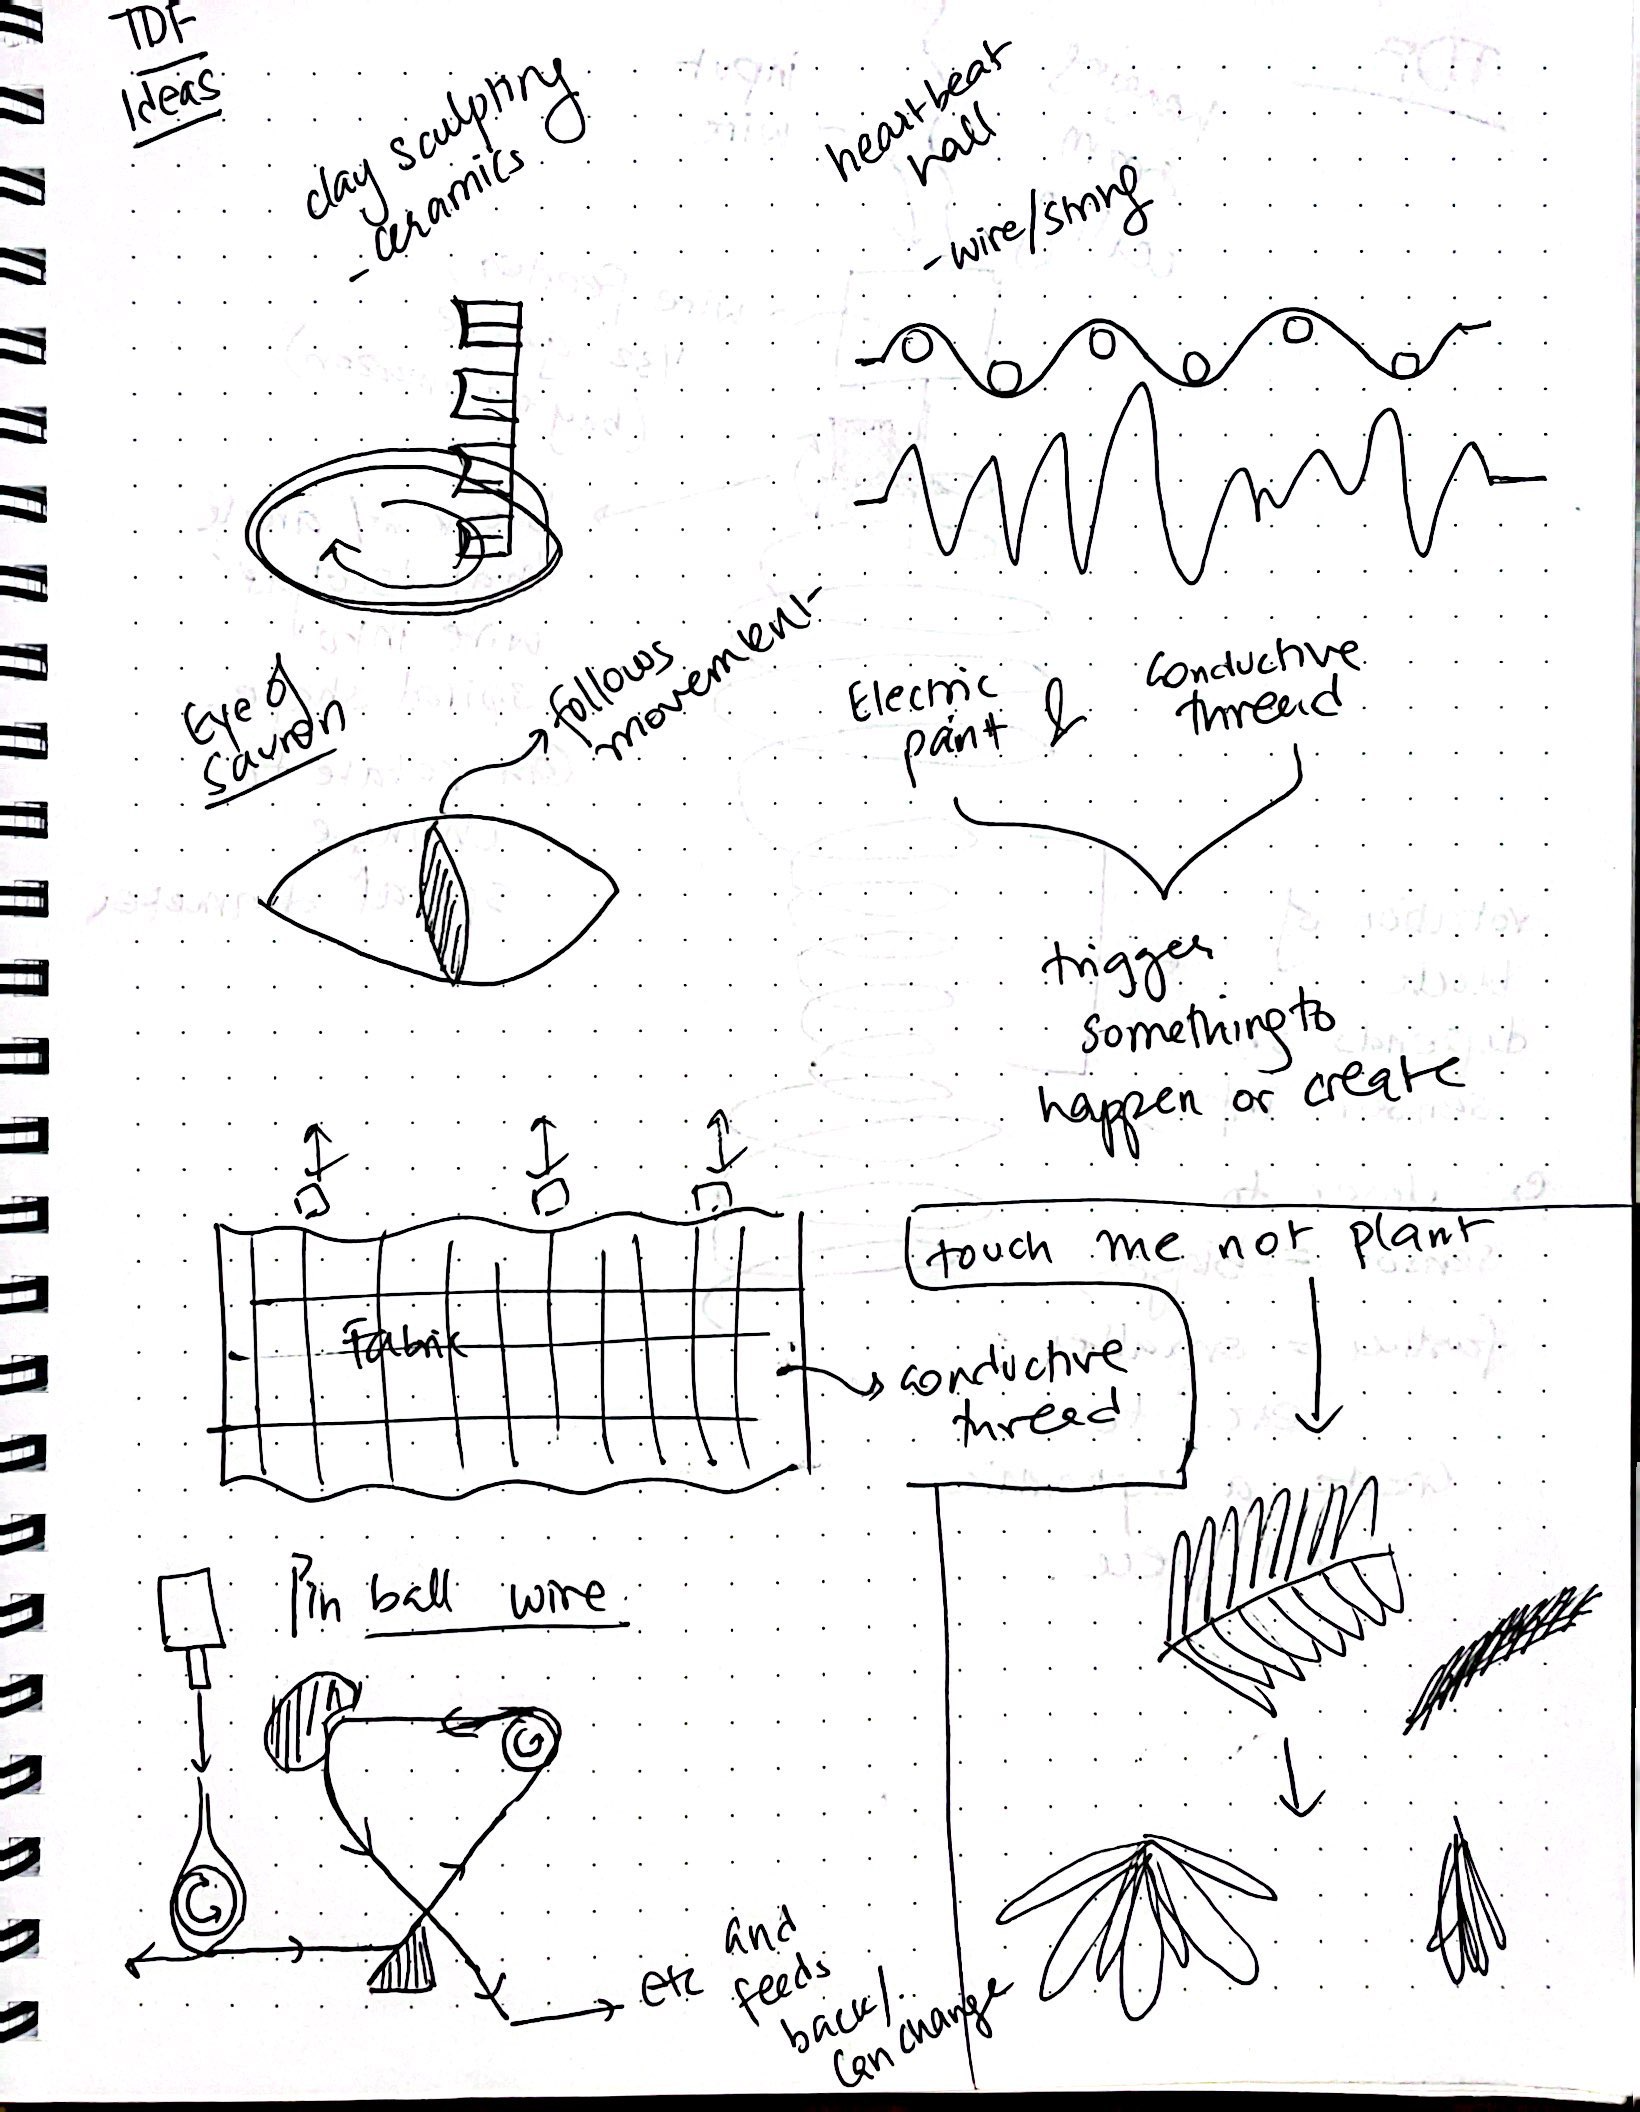 TDF
Ideas
clay sculpting
- ceramics
heartbeat
wall
- wire/string
Eye of
Sauron
follows
movement
Electric
paint
&
conductive
thread
trigger
something to
happen or create
Fabric
conductive
thread
touch me not plant
Pin ball wire
etc
and
feeds
back/
can change